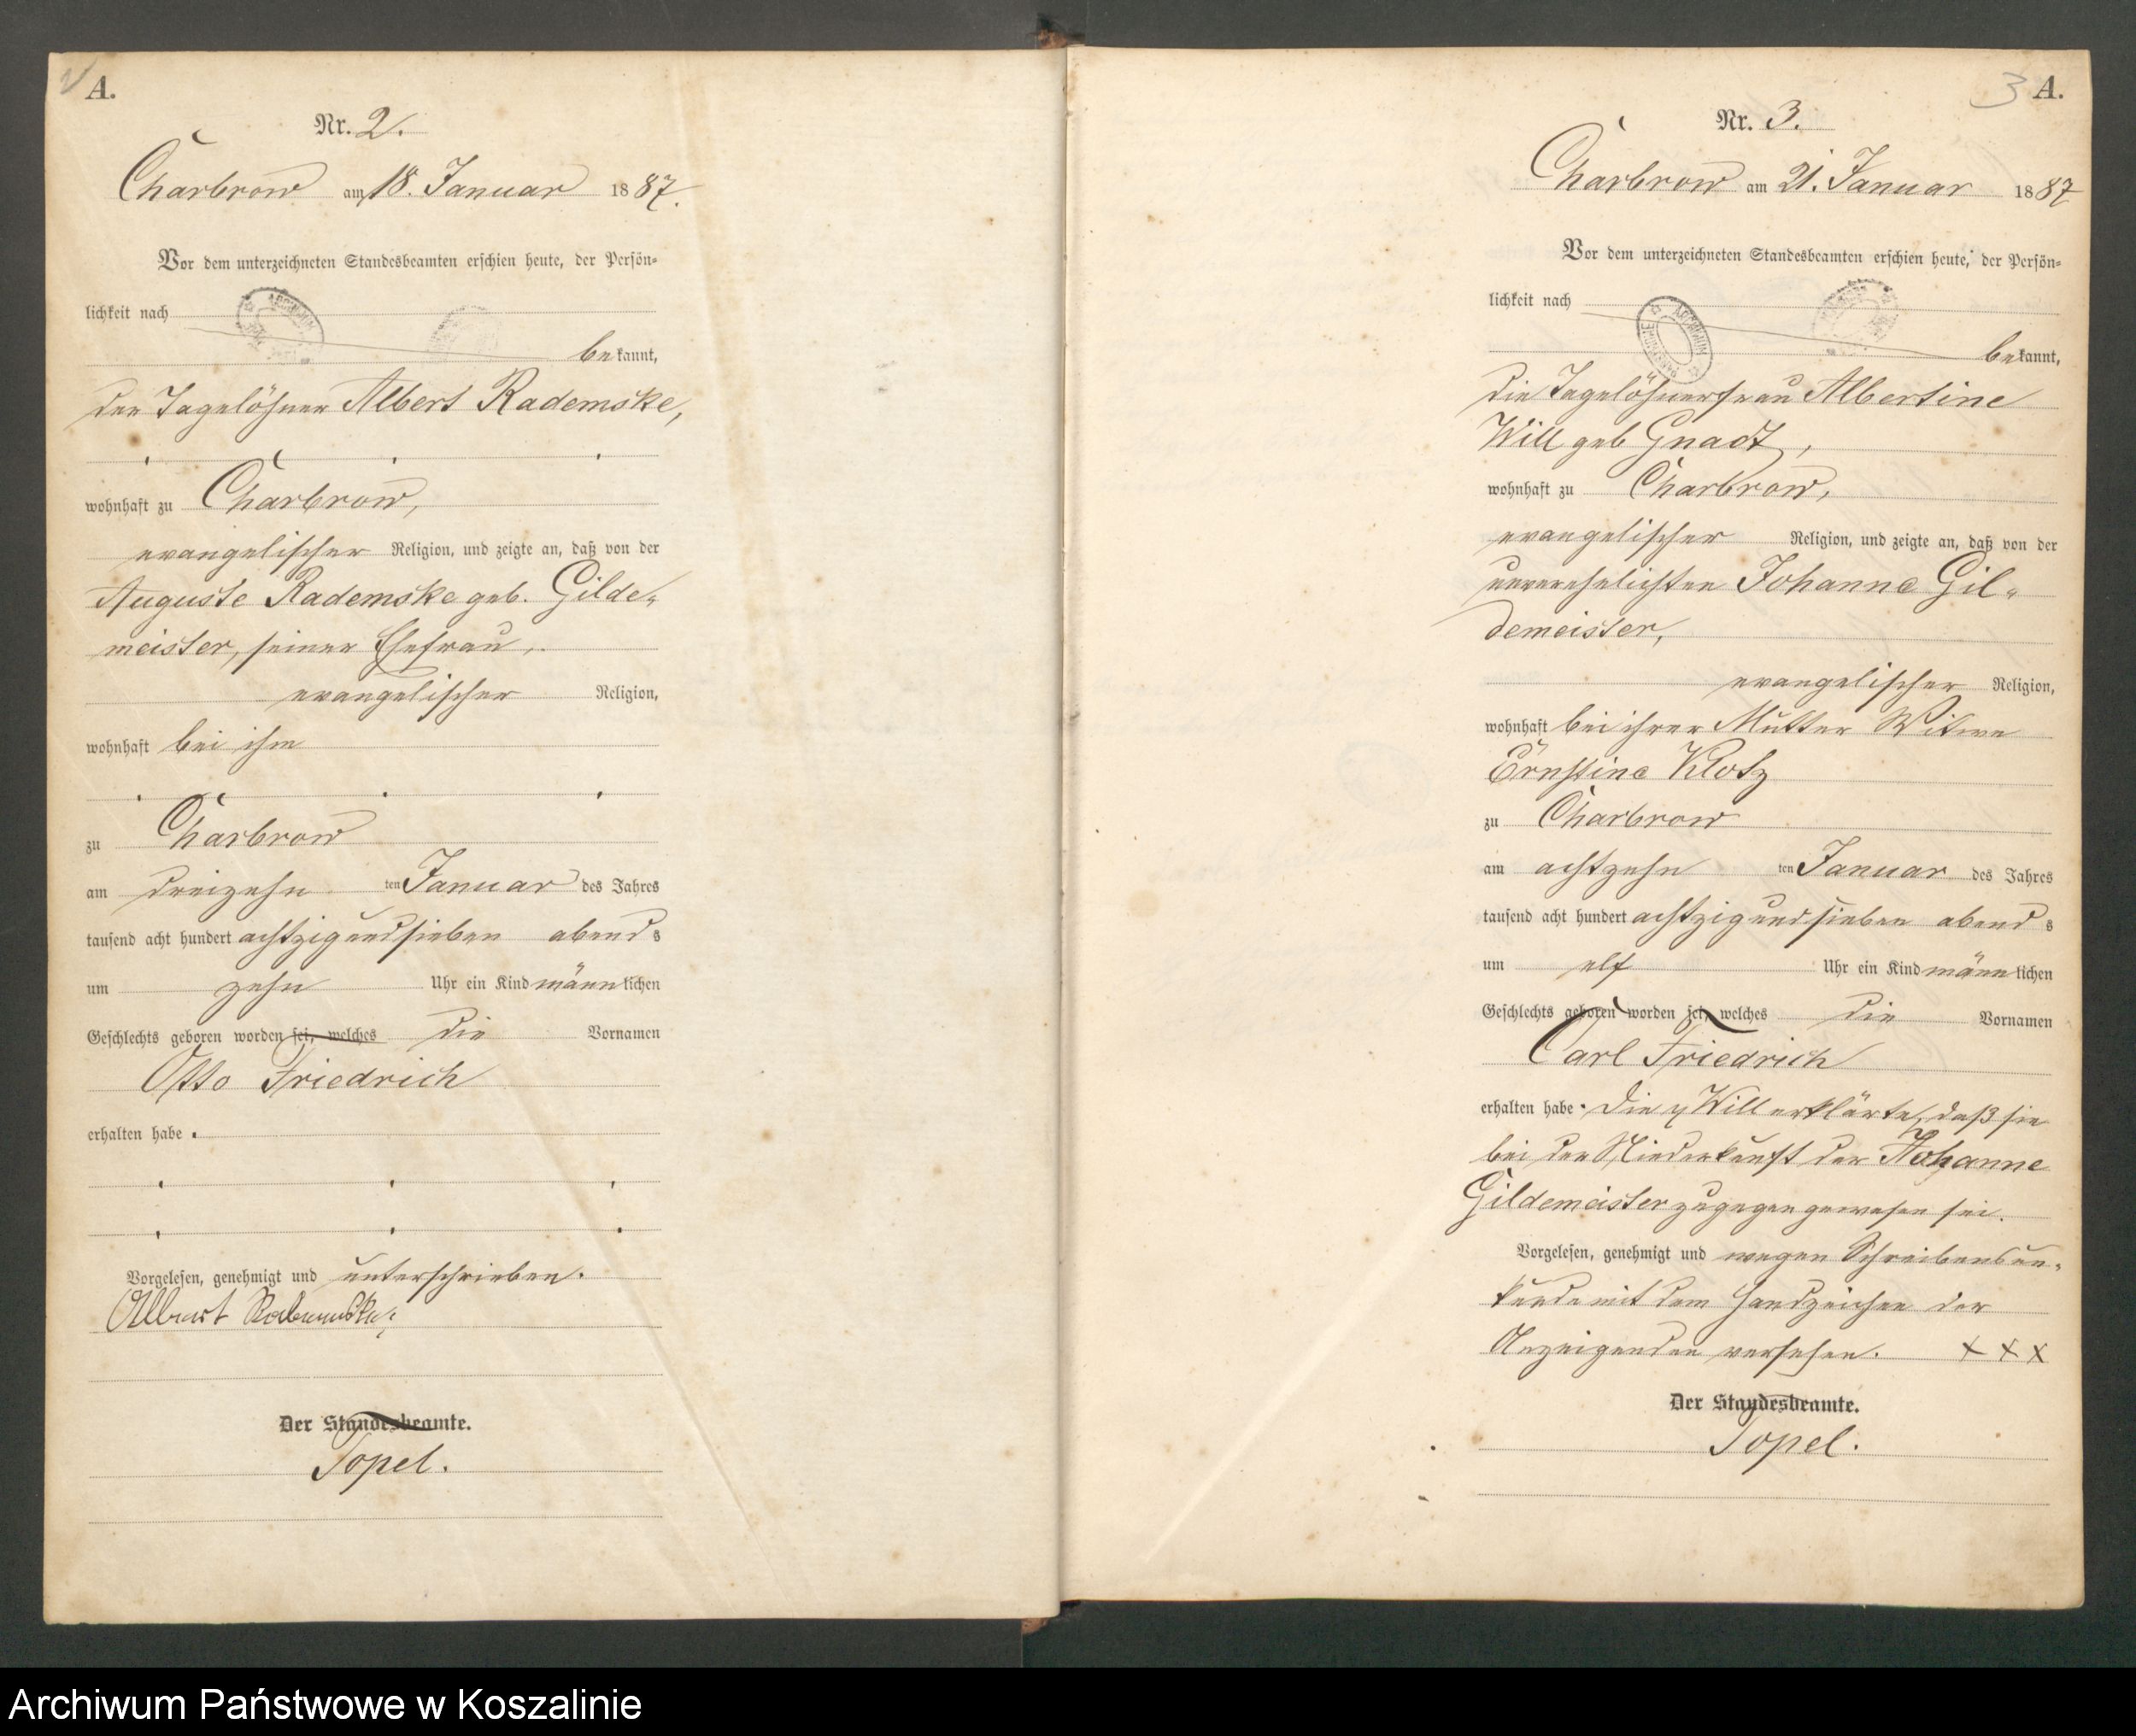 A.
Nr. 2.
Charbrow am 18. Januar 1887.
Vor dem unterzeichneten Standesbeamten erschien heute, der Persön-
lichkeit nach
bekannt,
der Tagelöhner Albert Rademske,
wohnhaft zu Charbrow,
evangelischer Religion, und zeigte an, daß von der
Auguste Rademske geb. Gilde-
meister, seiner Ehefrau,
evangelischer Religion,
wohnhaft bei ihm
zu Charbrow
am dreizehnten Januar des Jahres
tausend acht hundert achtzigundsieben abends
um zehn Uhr ein Kind männlichen
Geschlechts geboren worden sei, welches die Vornamen
Otto Friedrich
erhalten habe.
Vorgelesen, genehmigt und unterschrieben.
Albert
Der Standesbeamte.
Topel.
3 A.
Nr. 3.
Charbrow am 21. Januar 1887
Vor dem unterzeichneten Standesbeamten erschien heute, der Persön-
lichkeit nach
bekannt,
die Tagelöhnerfrau Albertine
Will geb Gnadt,
wohnhaft zu Charbrow,
evangelischer Religion, und zeigte an, daß von der
unverehelichten Johanne Gil-
demeister,
evangelischer Religion,
wohnhaft bei ihrer Mutter Witwe
Ernstine Klotz
zu Charbrow
am achtzehnten Januar des Jahres
tausend acht hundert achtzigundsieben abends
um elf Uhr ein Kind männlichen
Geschlechts geboren worden sei, welches die Vornamen
Carl Friedrich
erhalten habe. Die Will erklärte, daß sie
bei der Niederkunft der Johanne
Gildemeister zugegen gewesen sei.
Vorgelesen, genehmigt und wegen Schreibensun-
kunde mit dem Handzeichen der
Anzeigenden versehen. X X X
Der Standesbeamte.
Topel.
Archiwum Państwowe w Koszalinie